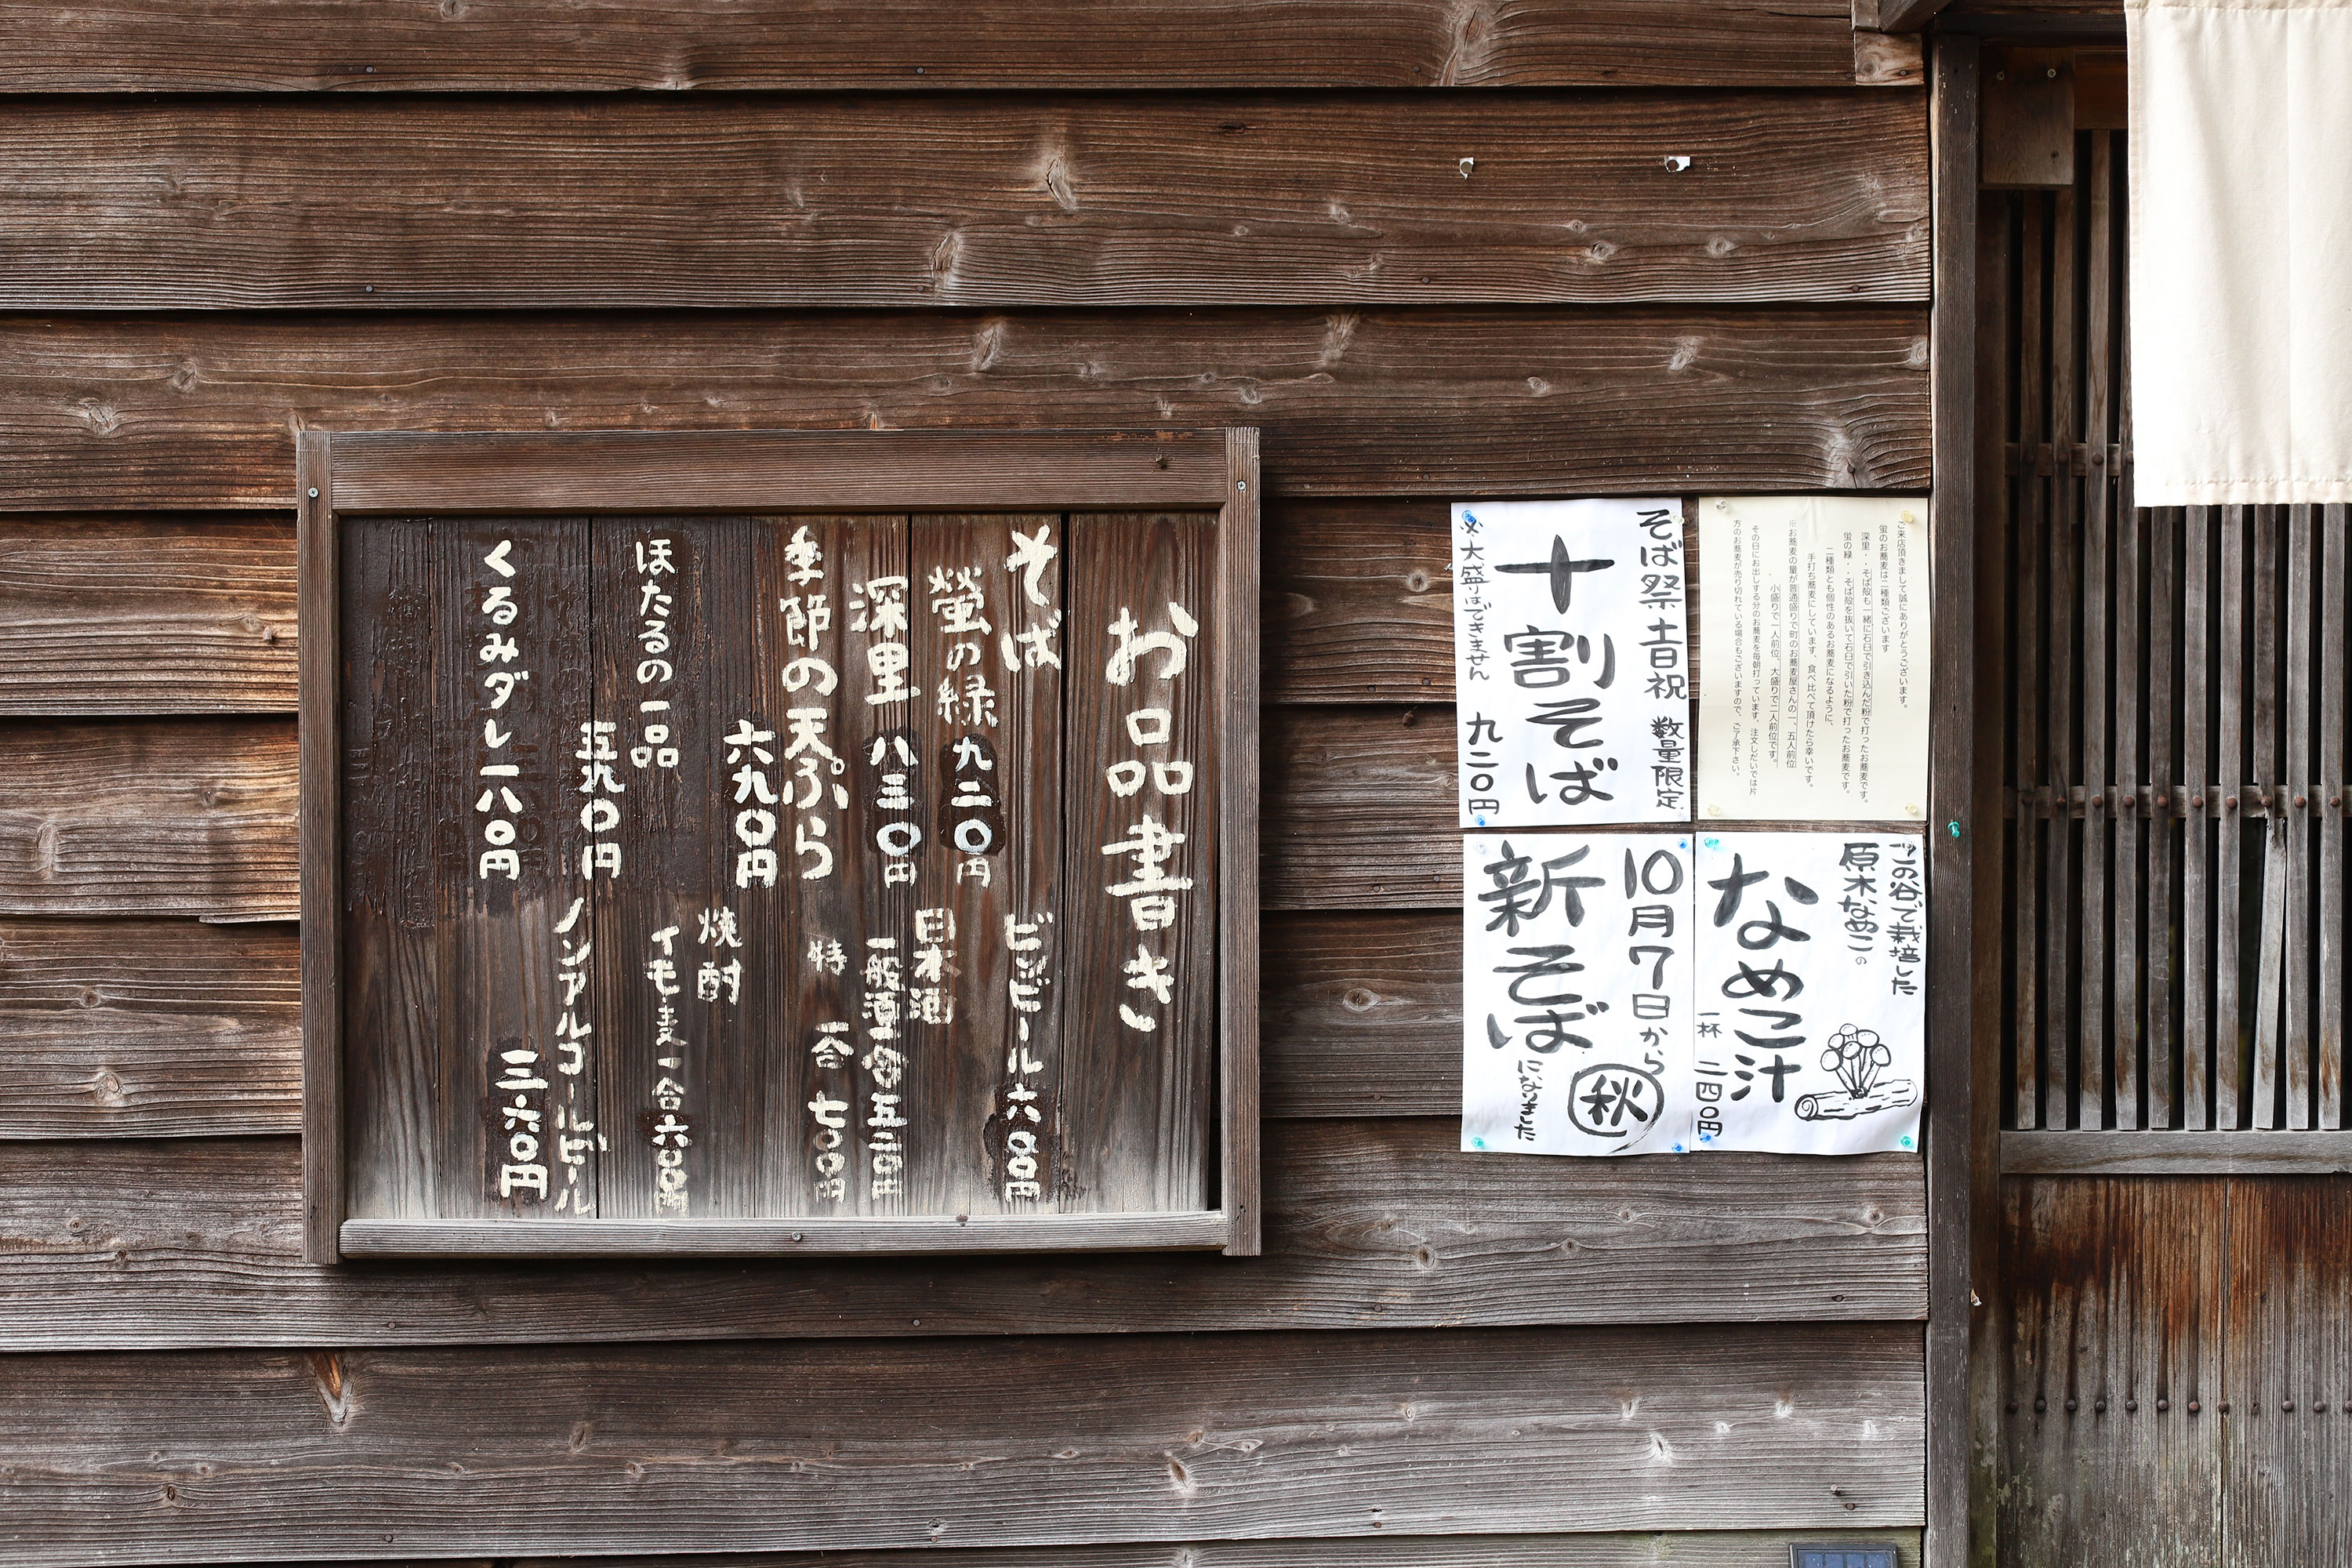 お品書き
そば
螢の緑 九二〇円
深里 八三〇円
季節の天ぷら
六九〇円
ほたるの一品
五九〇円
くるみダレ 一八〇円
ビンビール 六〇〇円
日本酒
一般酒 一合 五二〇円
特 一合 七〇〇円
焼酎
イモ・麦 一合 六〇〇円
ノンアルコールビール
三六〇円
そば祭 土日祝 数量限定
十割そば
※大盛りはできません 九二〇円
ご来店頂きまして誠にありがとうございます。
螢のお蕎麦は二種類ございます
深里・・そば殻も一緒に石臼で引き込んだ粉で打ったお蕎麦です。
螢の緑・・そば殻を抜いて石臼で引いた粉で打ったお蕎麦です。
二種類とも個性のあるお蕎麦になるように、
手打ち蕎麦にしています、食べ比べて頂けたら幸いです。
※お蕎麦の量が普通盛りで町のお蕎麦屋さんの一、五人前位
小盛りで一人前位、大盛りで二人前位です。
その日にお出しする分のお蕎麦を毎朝打っています、注文しだいでは片
方のお蕎麦が売り切れている場合もございますので、ご了承下さい。
10月7日から
新そば
になりました
秋
この谷で栽培した
原木なめこの
なめこ汁
一杯 二四〇円